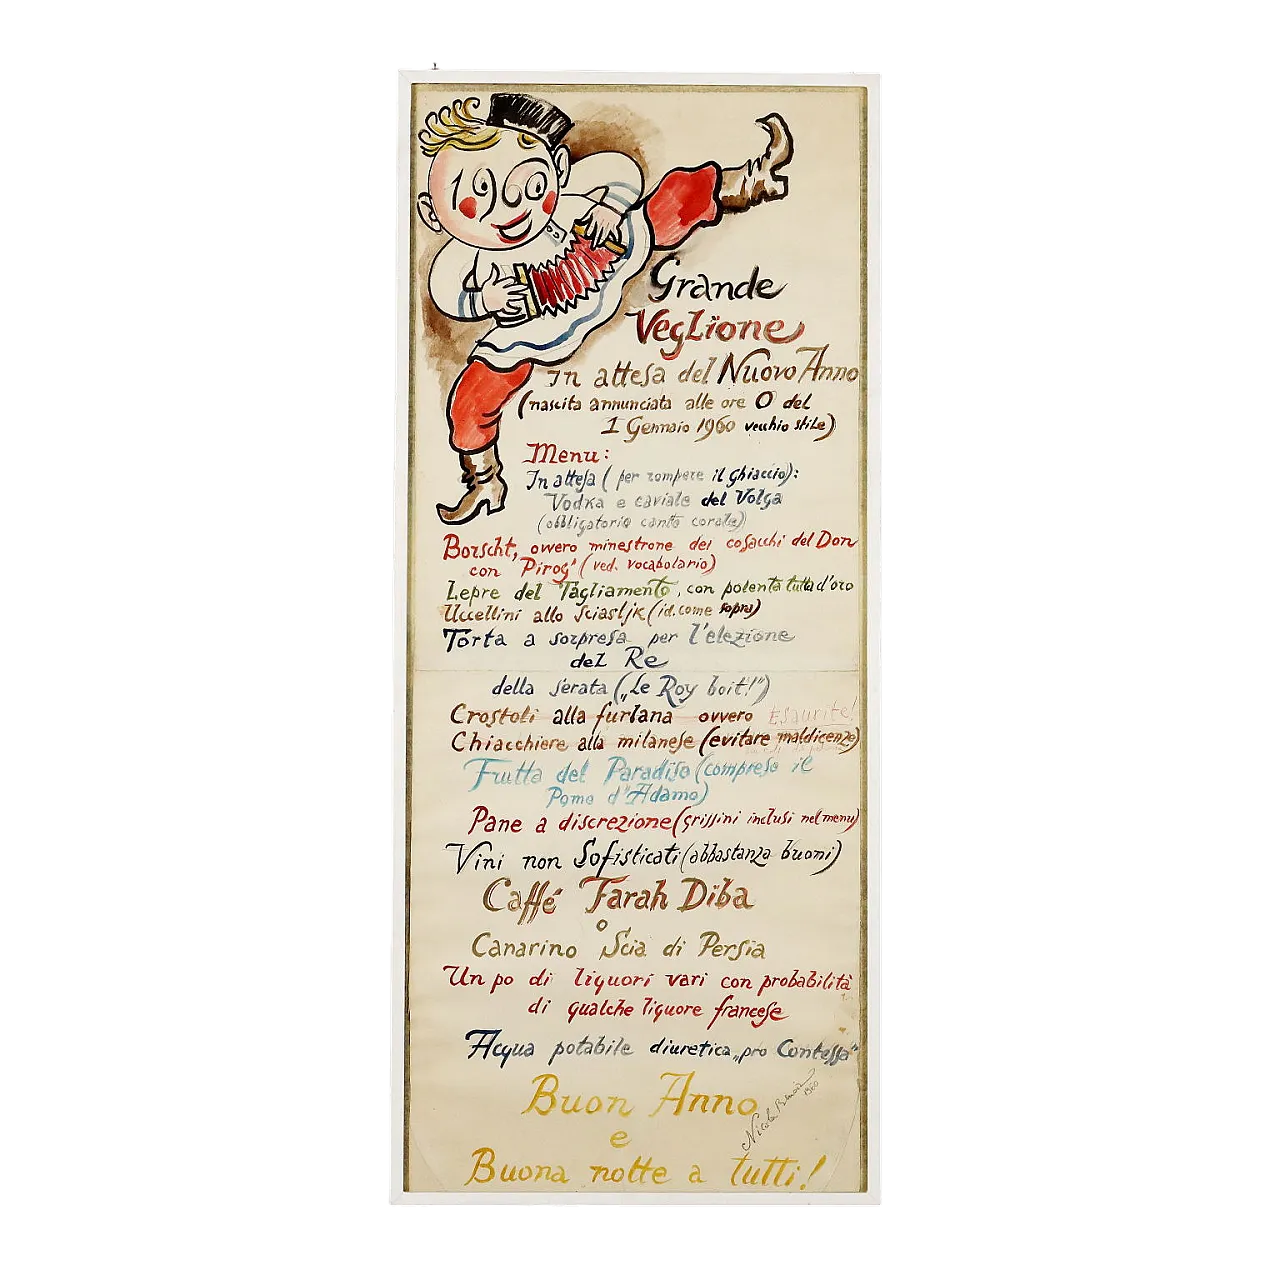 1960
Grande
Veglione
in attesa del Nuovo Anno
(nascita annunciata alle ore 0 del
1 Gennaio 1960 vecchio stile)
Menu:
In attesa (per rompere il ghiaccio):
Vodka e caviale del Volga
(obbligatorio canto corale)
Borscht, ovvero minestrone dei cosacchi del Don
con "Pirog" (ved. vocabolario)
Lepre del Tagliamento, con polenta tutta d'oro
Uccellini allo Sciasljk (id. come sopra)
Torta a sorpresa per l'elezione
del Re
della serata („Le Roy boit!")
Crostoli alla furlana ovvero Esaurite!
Chiacchiere alla milanese (evitare maldicenze)
Frutta del Paradiso (compreso il
Pomo d'Adamo)
Pane a discrezione (grissini inclusi nel menu)
Vini non Sofisticati (abbastanza buoni)
Caffé Farah Diba
o
Canarino Scià di Persia
Un po di liquori vari con probabilità
di qualche liquore francese
Acqua potabile diuretica „pro Contessa"
Buon Anno
e
Buona notte a tutti!
Nicola Benois
1960